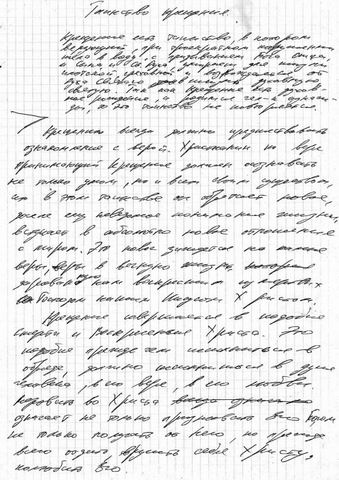 Таинство крещения.
Крещение есть таинство, в котором
верующий, при троекратном погружении
тела в воду, с призыванием Бога Отца,
и Сына и Св. Духа, умирает для жизни
плотской греховной и возрождается от
Духа Святого в жизнь духовную
святую. Так как крещение есть духов-
ное рождение, а родится чел-к однаж-
ды, то это таинство не повторяется.
Крещению всегда должно предшествовать
ознакомление с верой. Христианин по вере
принимающий Крещение должен осознавать
не только умом, но и всем своим существом,
что в этом таинстве он обретает новое,
ранее ему неведомое понимание жизни,
вступает в абсолютно новое отношение
с миром. Это новое зиждется на
веры, веры в вечную жизнь,
дарованную нам воскресшим из мертвых
Господом нашим Иисусом Христом.
Крещение совершается в подобие
смерти и Воскресения Христа. Это
подобие прежде чем исполниться в
обряде, должно исполниться в душе
человека, в его вере, в его любви.
во Христа
означает не только признавать Его Богом
не только получать от Него, но прежде
всего отдать вручить себя Христу,
полюбить Его.